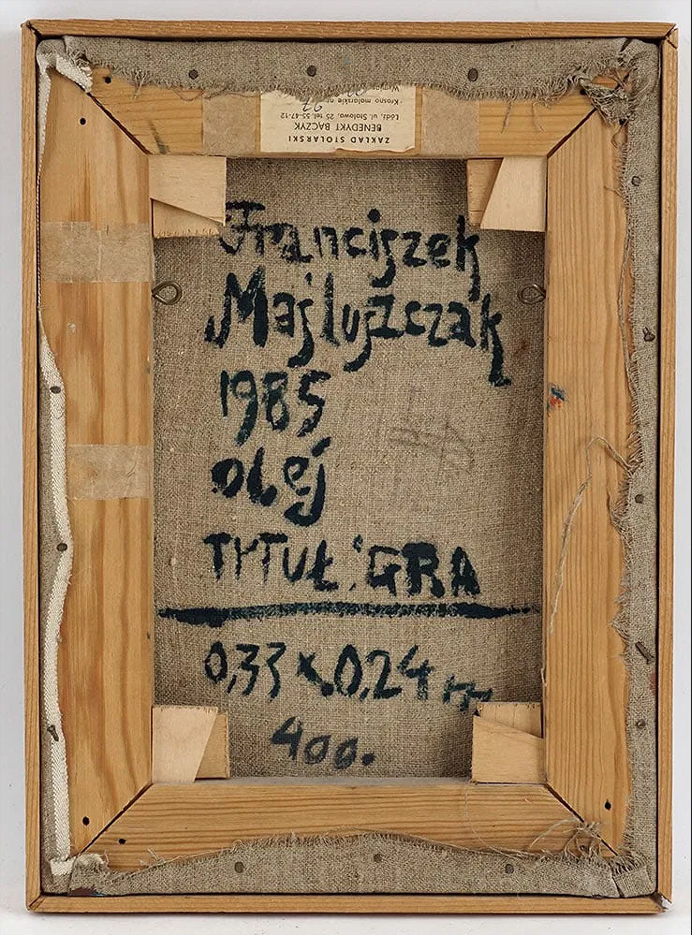 ZAKŁAD STOLARSKI
BENEDYKT BĄCZYK
Łódź, ul. Stolowa, 25 tel. 55-47-12
Krosno malarskie
Franciszek
Maśluszczak
1985
olej
TYTUŁ: GRA
0,33 x 0,24 m
400.